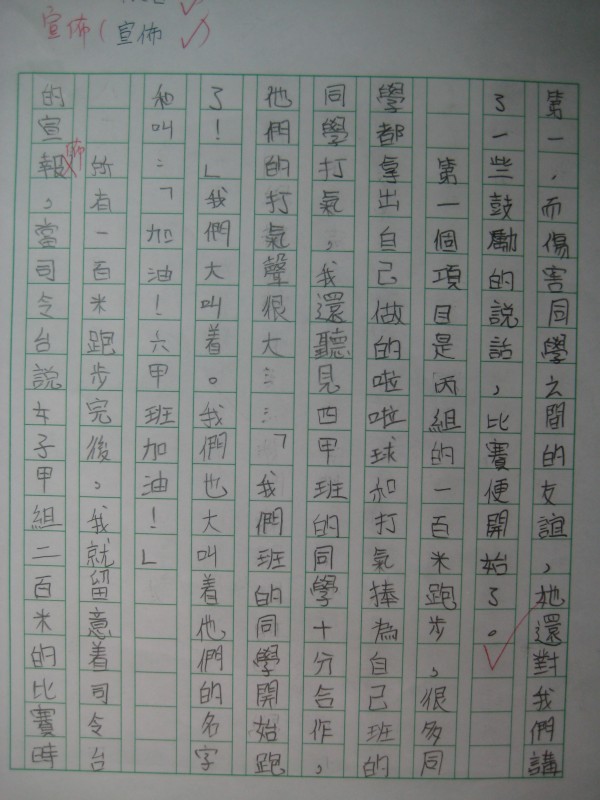 宣佈(宣佈✓)
第一,而傷害同學之間的友誼,她還對我們講
了一些鼓勵的說話,比賽便開始了。
第一個項目是丙組的一百米跑步,很多同
學都拿出自己做的啦啦球和打氣捧為自己班的
同學打氣,我還聽見四甲班的同學十分合作,
他們的打氣聲很大……「我們班的同學開始跑
了!」我們大叫着。我們也大叫着他們的名字
和叫:「加油!六甲班加油!」
所有一百米跑步完後,我就留意着司令台
的宣報,當司令台說女子甲組二百米的比賽時
佈